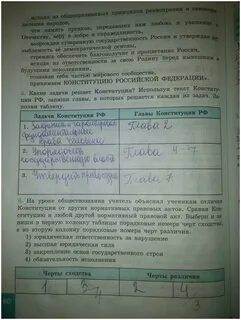 исходя из общепризнанных принципов равноправия и самоопре-
деления народов,
чтя память предков, передавших нам любовь и уважение к
Отечеству, веру в добро и справедливость,
возрождая суверенную государственность России и утверждая не-
зыблемость её демократической основы,
стремясь обеспечить благополучие и процветание России,
исходя из ответственности за свою Родину перед нынешним и
будущими поколениями,
сознавая себя частью мирового сообщества,
принимаем КОНСТИТУЦИЮ РОССИЙСКОЙ ФЕДЕРАЦИИ».
Какие задачи решает Конституция? Используя текст Консту-
ции РФ, запиши главы, в которых решается каждая из задач. За-
полни таблицу.
Задачи Конституции РФ
Главы Конституции РФ
1.
права человека
Глава 2
2.
Глава 4-7
3.
Глава 7
6. На уроке обществознания учитель объяснил ученикам отличия
Конституции от других нормативных правовых актов. Сравни Кон-
ституцию и любой другой нормативный правовой акт. Выбери и за-
пиши в первую колонку таблицы порядковые номера черт сходства,
а во вторую колонку порядковые номера черт различия.
1) юридическая ответственность за нарушение
2) высшая юридическая сила
3) закрепление основ государственного строя
4) обязательность исполнения
Черты сходства
Черты различия
1
3
2
4
4
3
60